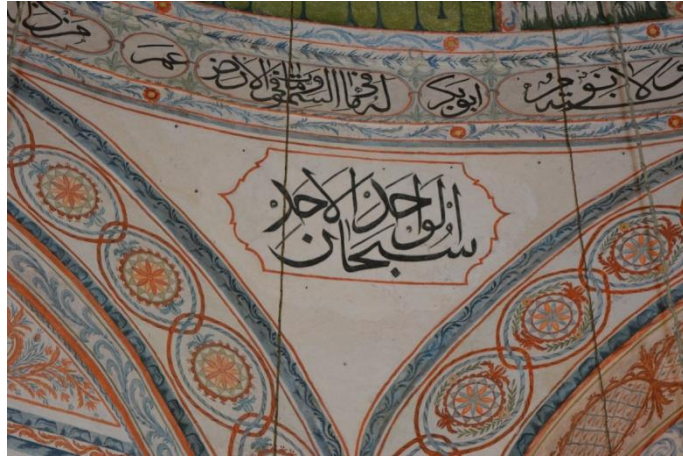 ولا نوم
ابو بكر
له ما في السموات وما في الارض
عمر
سبحان الواحد الاحد